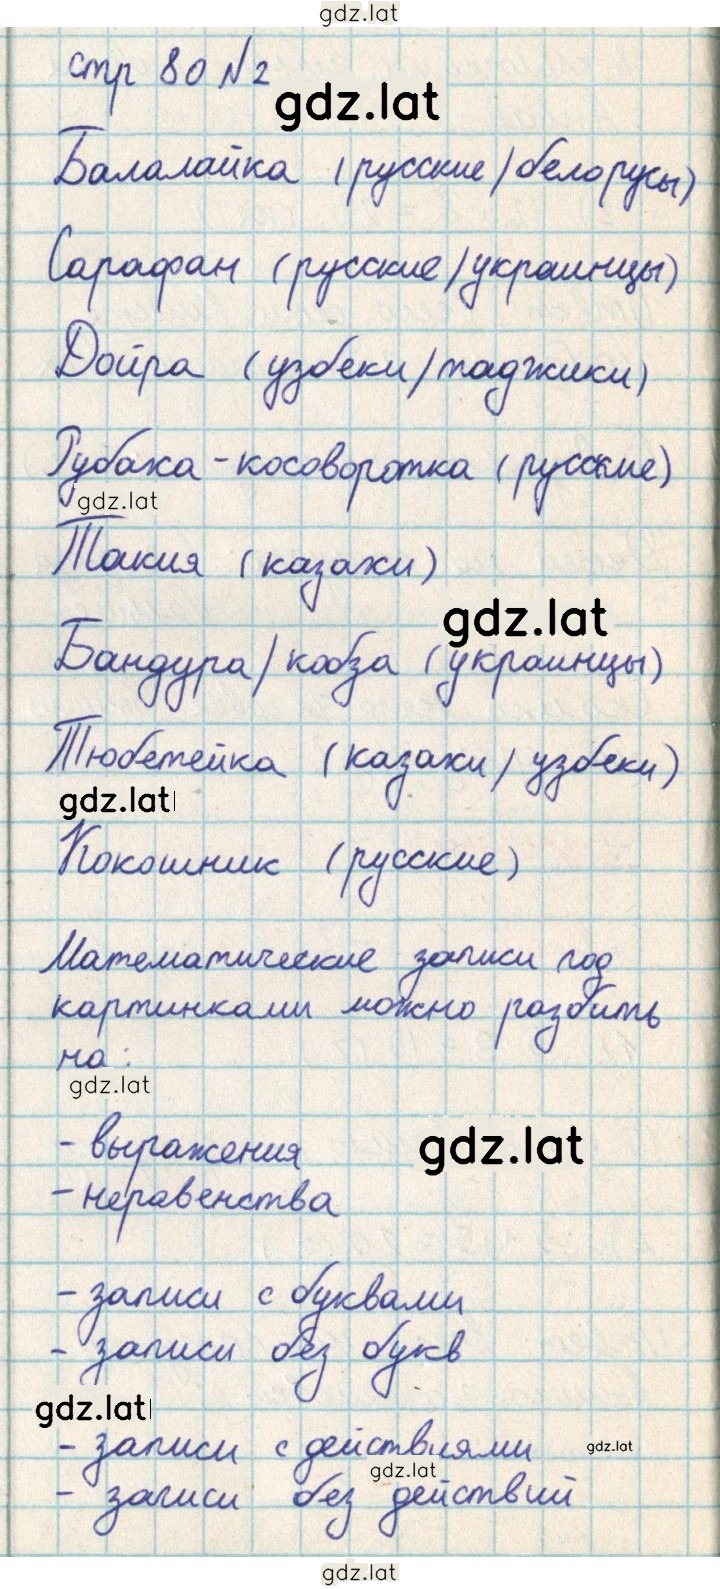 gdz.lat
стр 80 №2
gdz.lat
Балалайка (русские/белорусы)
Сарафан (русские/украинцы)
Дойра (узбеки/таджики)
Рубаха-косоворотка (русские)
gdz.lat
Такия (казахи)
gdz.lat
Бандура/кобза (украинцы)
Тюбетейка (казахи/узбеки)
gdz.lat
Кокошник (русские)
Математические записи под
картинками можно разбить
на:
gdz.lat
- выражения
gdz.lat
- неравенства
- записи с буквами
- записи без букв
gdz.lat
- записи с действиями
gdz.lat
gdz.lat
- записи без действий
gdz.lat